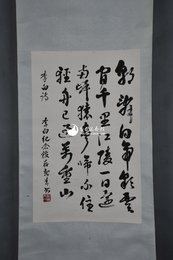 朝辭白帝彩雲
間千里江陵一日還
兩岸猿聲啼不住
輕舟已過萬重山
李白詩
李白纪念馆